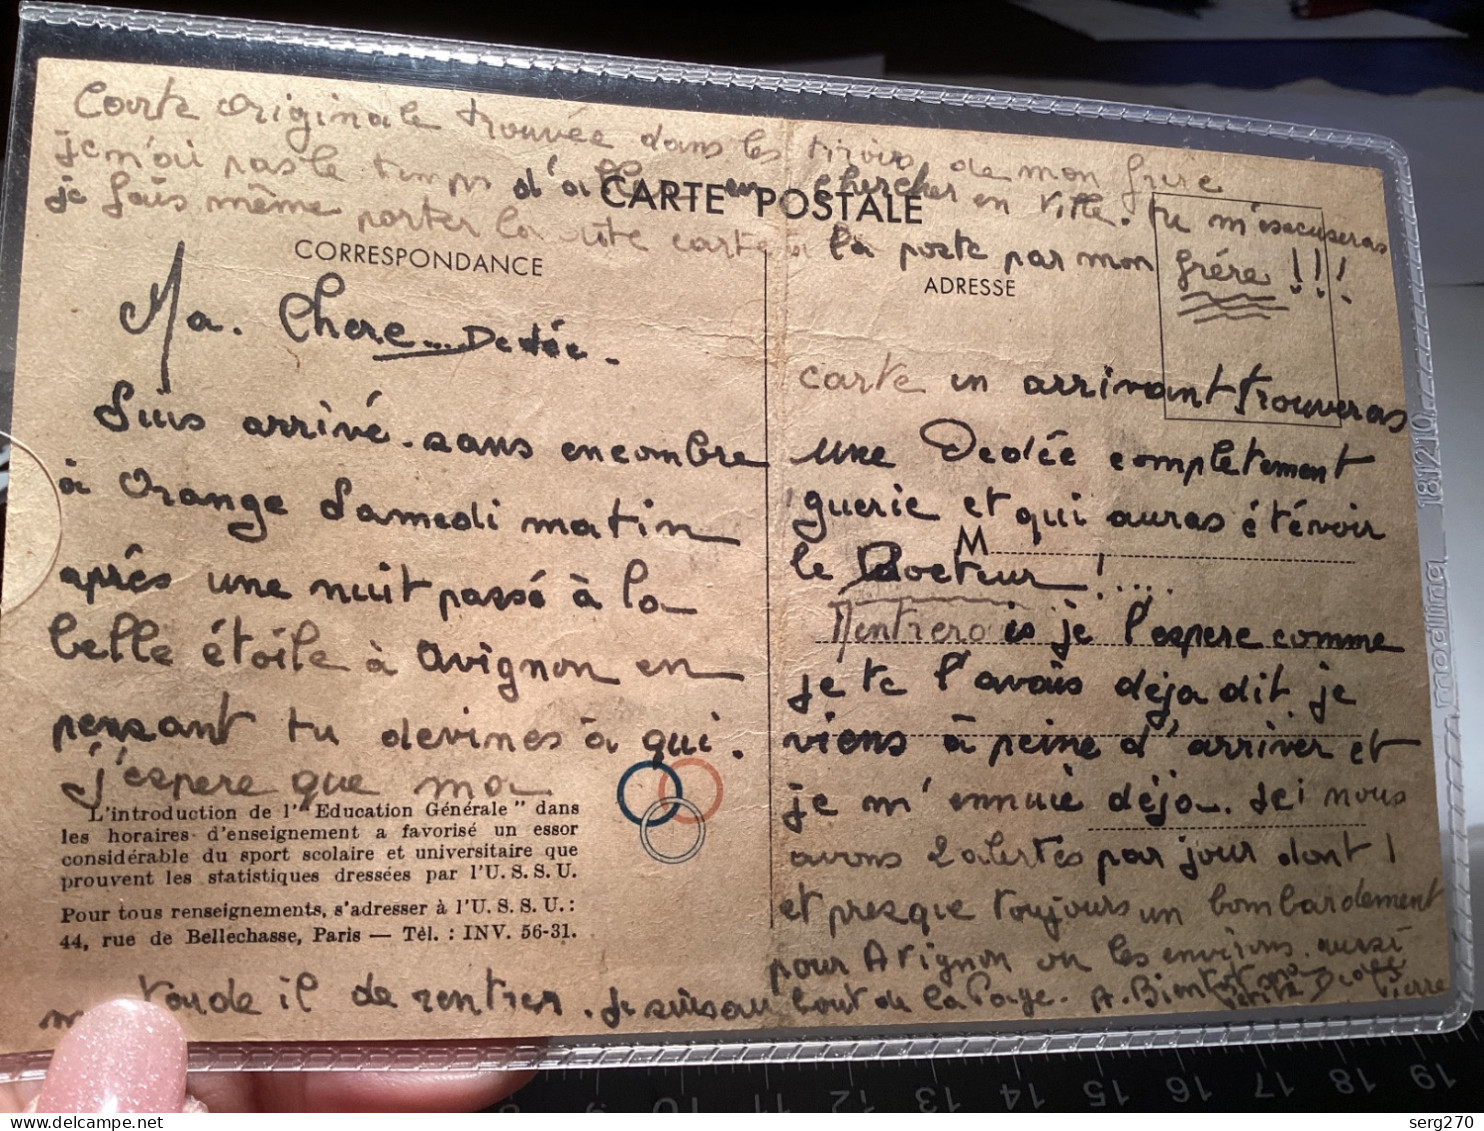 Carte originale trouvée dans les tiroirs de mon frère
je n'ai pas le temps d'aller en chercher en ville. tu m'esecuseras
je fais même porter la carte à la poste par mon frére !!!
CARTE POSTALE
CORRESPONDANCE
ADRESSE
Ma. Chere... Dedée.
Suis arrivé. sans encombre
à Orange Samedi matin
après une nuit passé à la
belle étoile à Avignon en
pensant tu devines à qui.
J'espere que ma
L'introduction de l'"Education Générale" dans
les horaires d'enseignement a favorisé un essor
considérable du sport scolaire et universitaire que
prouvent les statistiques dressées par l'U. S. S. U.
Pour tous renseignements, s'adresser à l'U. S. S. U. :
44, rue de Bellechasse, Paris — Tél. : INV. 56-31.
carte en arrivant trouveras
une Dedée completement
guerie et qui auras étévoir
M
le Docteur !....
Rentrerais je l'espere comme
je te l'avais déja dit je
viens à peine d'arriver et
je m'ennuie déja. Ici nous
avons 2 alertes par jour dont 1
et presque toujours un bombardement
pour Avignon ou les environs. aussi
tarde il de rentrer. Je suis au bout de la Page. A. Bientot
Petite Dedée
Pierre
181210
modling
10 11 12 13 14 15 16 17 18 19
serg270